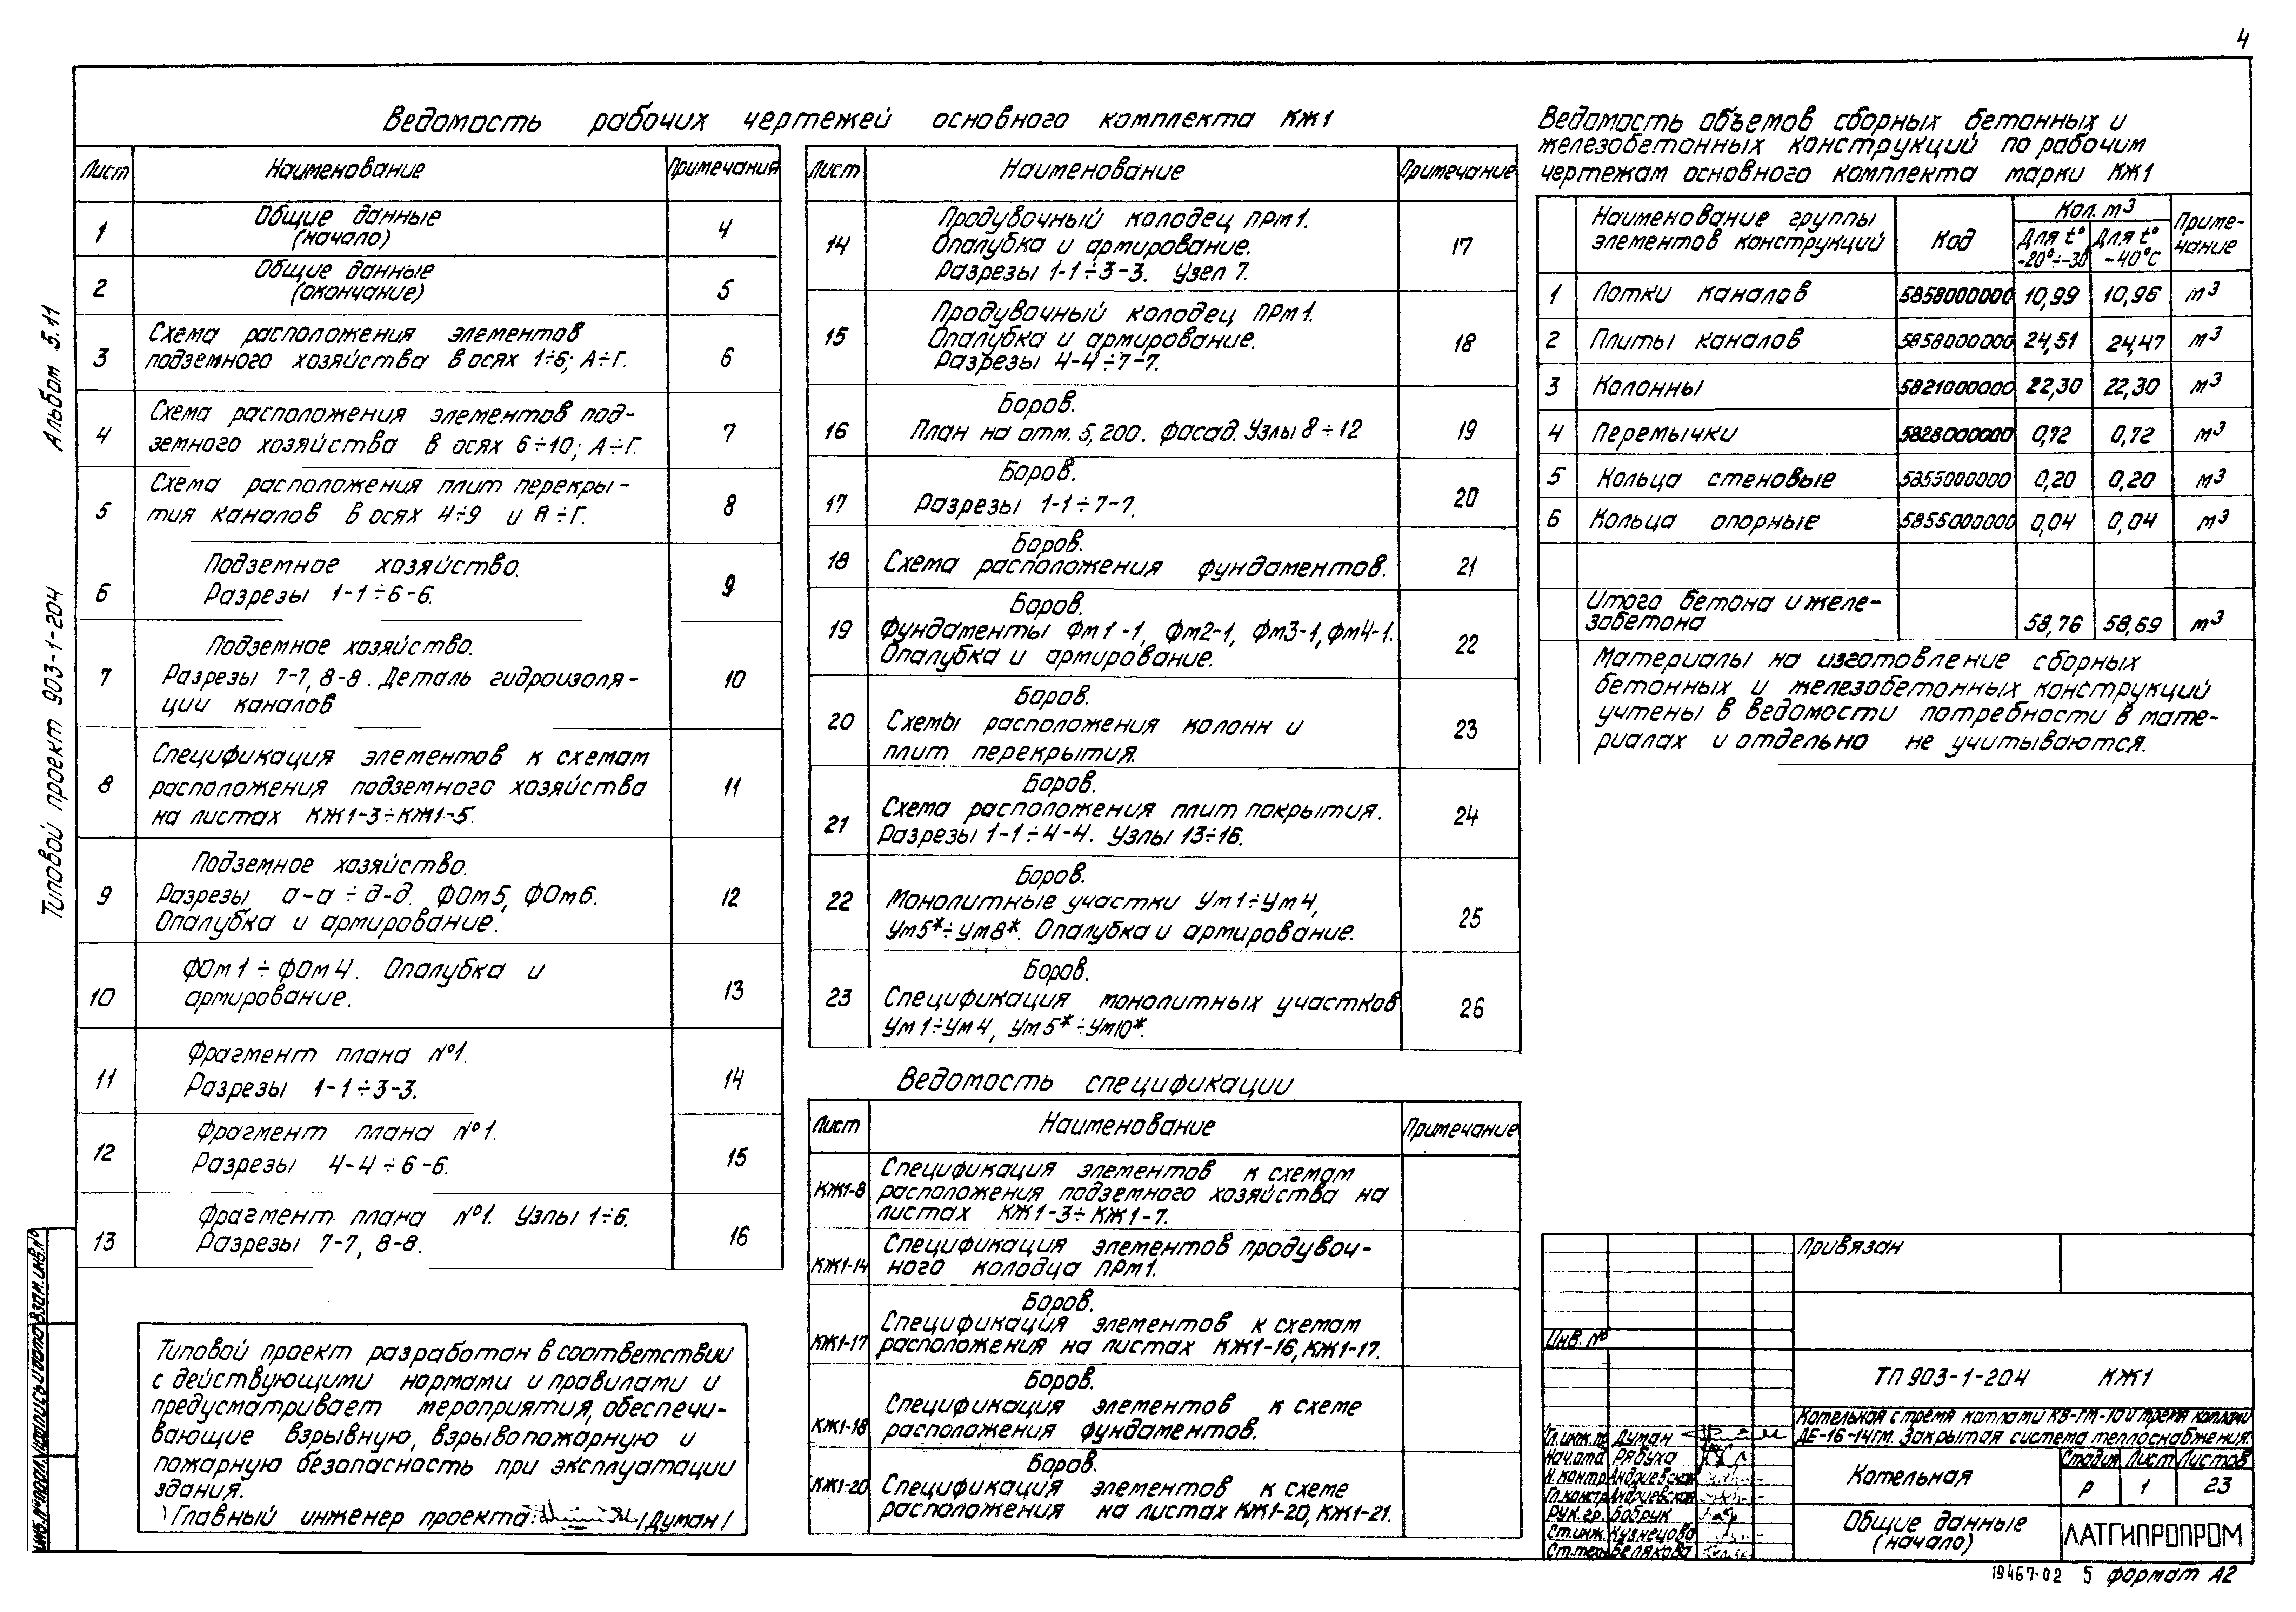 4
Ведомость рабочих чертежей основного комплекта КЖ1
Лист Наименование Примечания
1 Общие данные (начало) 4
2 Общие данные (окончание) 5
3 Схема расположения элементов
подземного хозяйства в осях 1÷6; А÷Г. 6
4 Схема расположения элементов под-
земного хозяйства в осях 6÷10; А÷Г. 7
5 Схема расположения плит перекры-
тия каналов в осях 4÷9 и А÷Г. 8
6 Подземное хозяйство.
Разрезы 1-1÷6-6. 9
7 Подземное хозяйство.
Разрезы 7-7, 8-8. Деталь гидроизоля-
ции каналов 10
8 Спецификация элементов к схемам
расположения подземного хозяйства
на листах КЖ1-3÷КЖ1-5. 11
9 Подземное хозяйство.
Разрезы а-а÷д-д. ФОм5, ФОм6.
Опалубка и армирование. 12
10 ФОм1÷ФОм4. Опалубка и
армирование. 13
11 Фрагмент плана №1.
Разрезы 1-1÷3-3. 14
12 Фрагмент плана №1.
Разрезы 4-4÷6-6. 15
13 Фрагмент плана №1. Узлы 1÷6.
Разрезы 7-7, 8-8. 16
Лист Наименование Примечание
14 Продувочный колодец ПРм1.
Опалубка и армирование.
Разрезы 1-1÷3-3. Узел 7. 17
15 Продувочный колодец ПРм1.
Опалубка и армирование.
Разрезы 4-4÷7-7. 18
16 Боров.
План на отм. 5,200. Фасад. Узлы 8÷12 19
17 Боров.
Разрезы 1-1÷7-7. 20
18 Боров.
Схема расположения фундаментов. 21
19 Боров.
Фундаменты Фм1-1, Фм2-1, Фм3-1, Фм4-1.
Опалубка и армирование. 22
20 Боров.
Схемы расположения колонн и
плит перекрытия. 23
21 Боров.
Схема расположения плит покрытия.
Разрезы 1-1÷4-4. Узлы 13÷16. 24
22 Боров.
Монолитные участки Ум1÷Ум4,
Ум5*÷Ум8*. Опалубка и армирование. 25
23 Боров.
Спецификация монолитных участков
Ум1÷Ум4, Ум5*÷Ум10*. 26
Ведомость спецификации
Лист Наименование Примечание
КЖ1-8 Спецификация элементов к схемам
расположения подземного хозяйства на
листах КЖ1-3÷КЖ1-7.
КЖ1-14 Спецификация элементов продувоч-
ного колодца ПРм1.
КЖ1-17 Боров.
Спецификация элементов к схемам
расположения на листах КЖ1-16, КЖ1-17.
КЖ1-18 Боров.
Спецификация элементов к схеме
расположения фундаментов.
КЖ1-20 Боров.
Спецификация элементов к схеме
расположения на листах КЖ1-20, КЖ1-21.
Ведомость объемов сборных бетонных и
железобетонных конструкций по рабочим
чертежам основного комплекта марки КЖ1
Наименование группы элементов конструкций Код Кол. м3 Приме-чание
Для t° -20°÷-30 Для t° -40°С
1 Лотки каналов 5858000000 10,99 10,96 м3
2 Плиты каналов 5858000000 24,51 24,47 м3
3 Колонны 5821000000 22,30 22,30 м3
4 Перемычки 5828000000 0,72 0,72 м3
5 Кольца стеновые 5855000000 0,20 0,20 м3
6 Кольца опорные 5855000000 0,04 0,04 м3
Итого бетона и желе-
зобетона 58,76 58,69 м3
Материалы на изготовление сборных
бетонных и железобетонных конструкций
учтены в ведомости потребности в мате-
риалах и отдельно не учитываются.
Типовой проект разработан в соответствии
с действующими нормами и правилами и
предусматривает мероприятия, обеспечи-
вающие взрывную, взрывопожарную и
пожарную безопасность при эксплуатации
здания.
Главный инженер проекта: /Думан/
Типовой проект 903-1-204 Альбом 5.11
Инв.№ подл. Подпись и дата Взам.инв.№
Привязан
Инв. №
ТП 903-1-204 КЖ1
Котельная с тремя котлами КВ-ГМ-10 и тремя котлами
ДЕ-16-14ГМ. Закрытая система теплоснабжения.
Гл.инж.пр Думан
Нач.отд Рябуха
Н.контр Андриевская
Гл.констр Андриевская
Рук.гр. Бобрук
Ст.инж. Кузнецова
Ст.техн Белякова
Котельная
Стадия Лист Листов
Р 1 23
Общие данные
(начало)
ЛАТГИПРОПРОМ
19467-02 5 формат А2